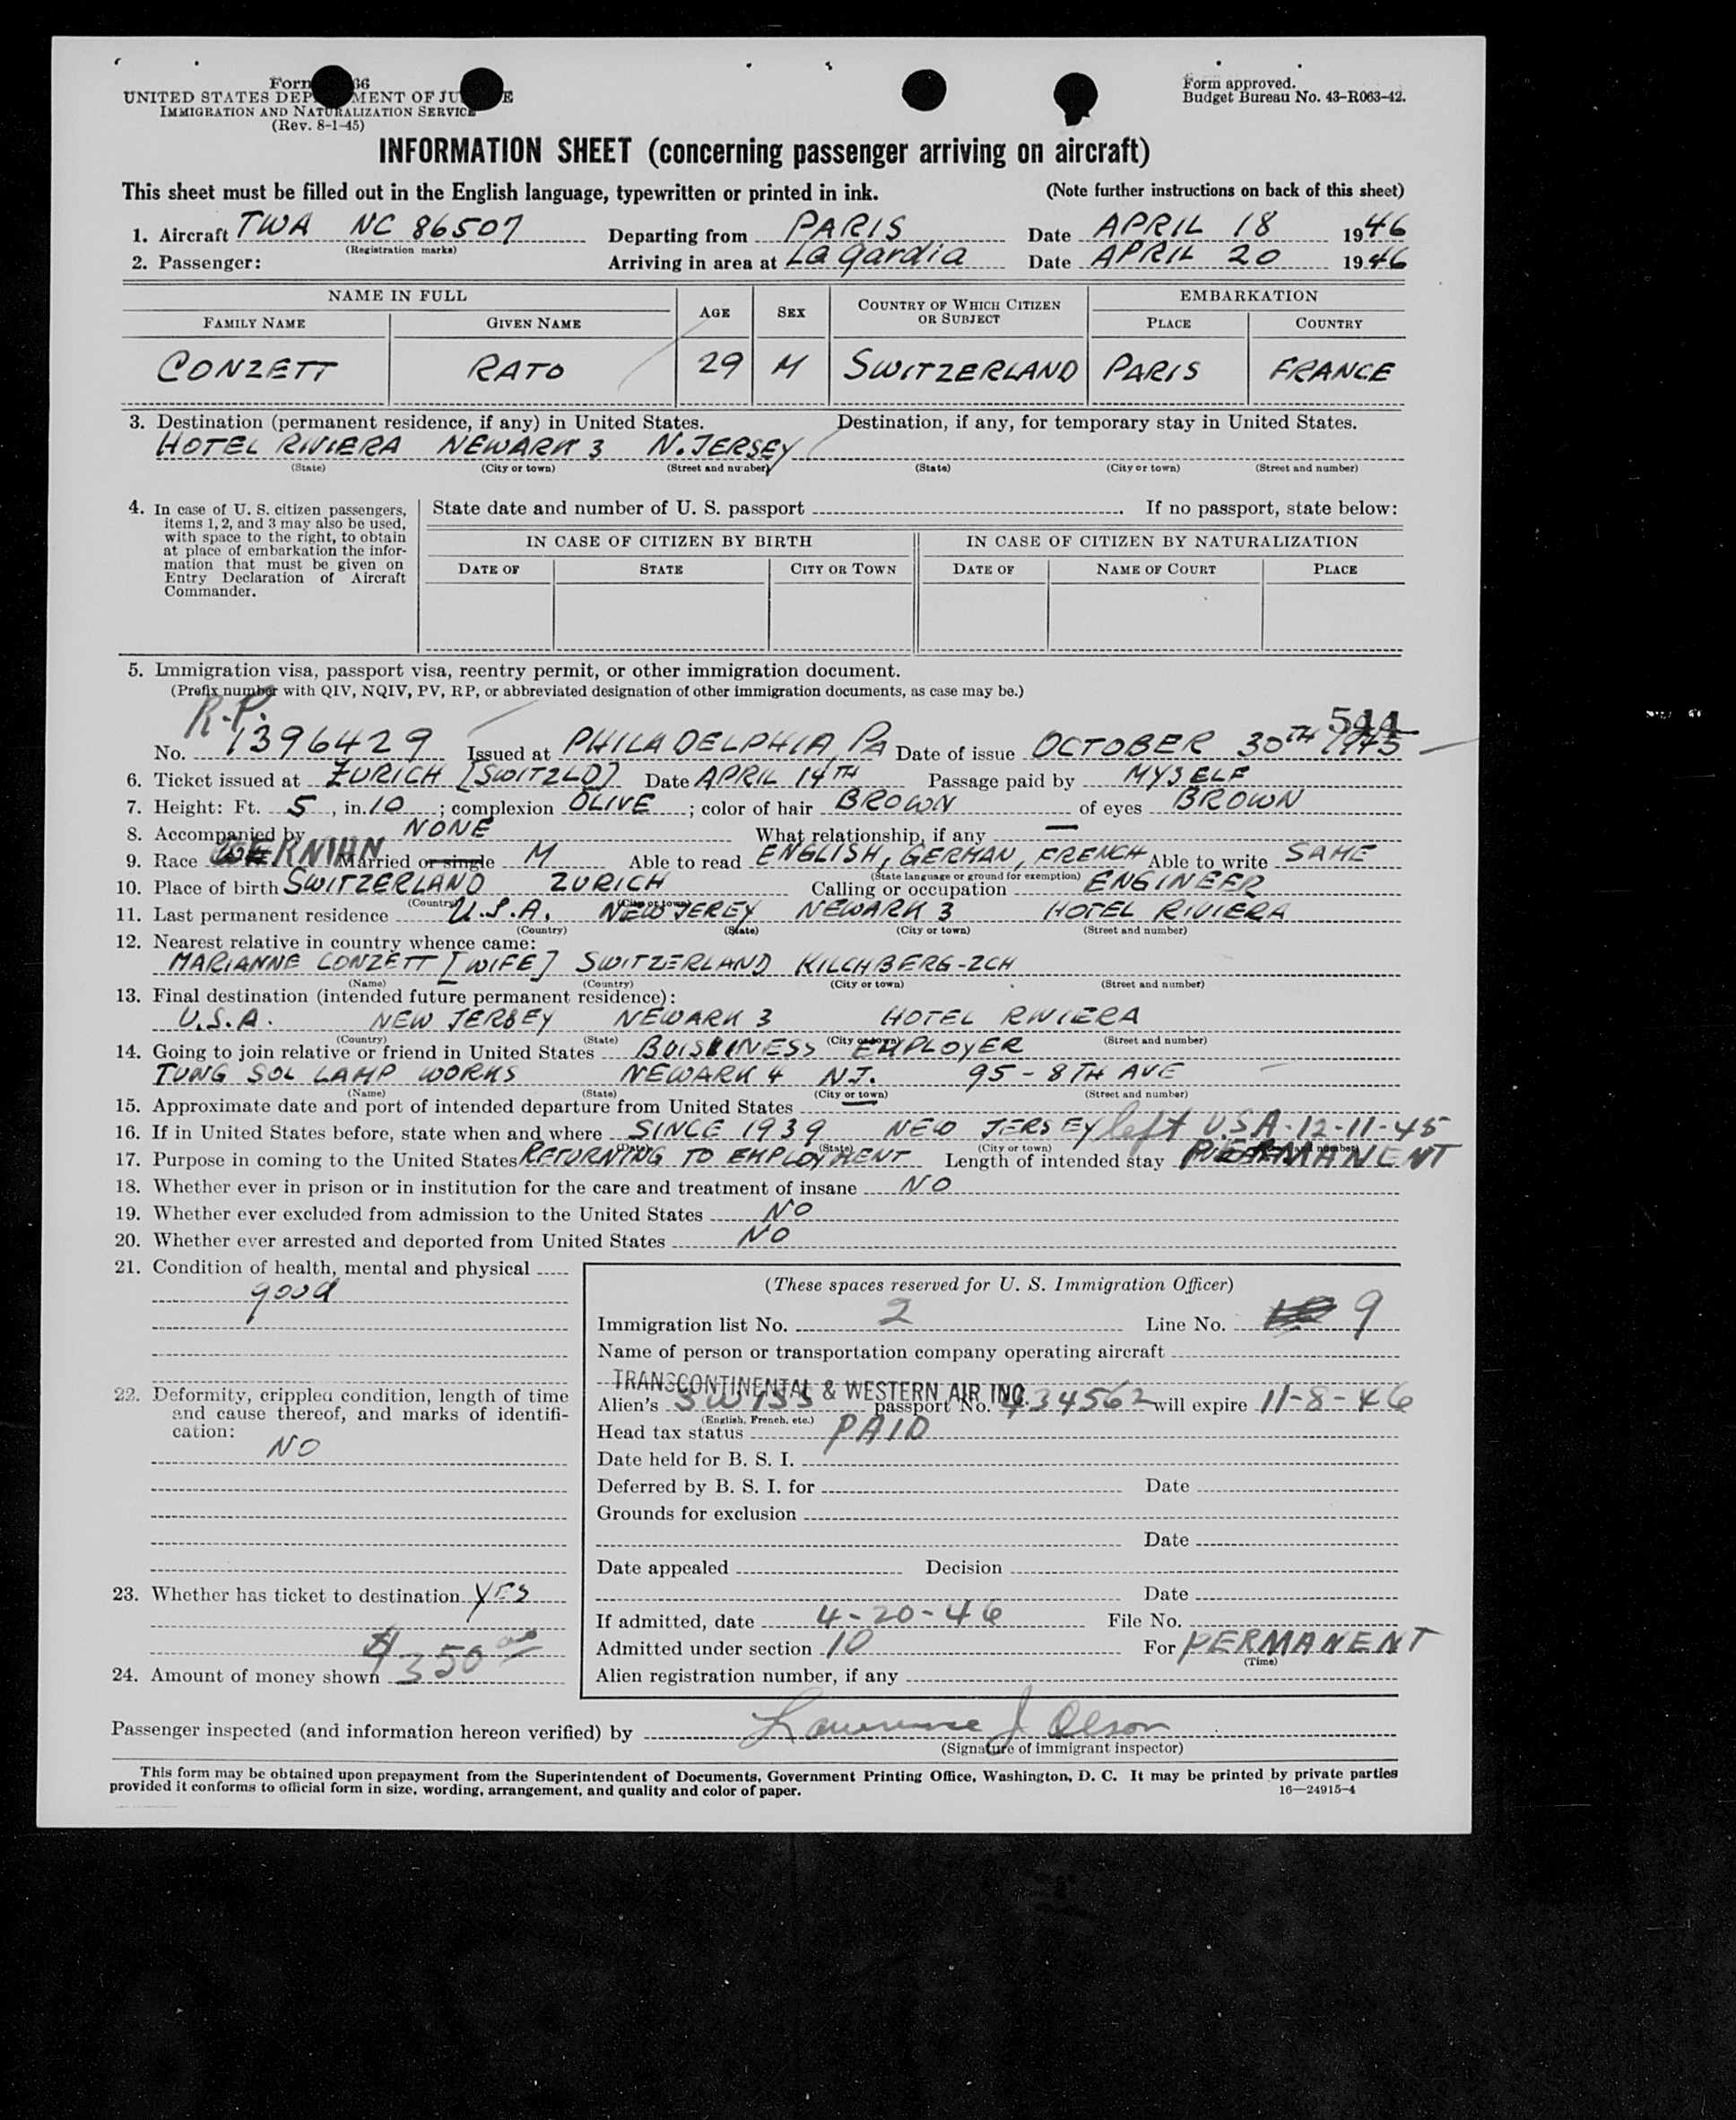 Form 66
UNITED STATES DEP MENT OF JU E
IMMIGRATION AND NATURALIZATION SERVICE
(Rev. 8-1-45)
Form approved.
Budget Bureau No. 43-R063-42.
INFORMATION SHEET (concerning passenger arriving on aircraft)
This sheet must be filled out in the English language, typewritten or printed in ink. (Note further instructions on back of this sheet)
1. Aircraft TWA NC 86507 Departing from PARIS Date APRIL 18 1946
(Registration marks)
2. Passenger: Arriving in area at La gardia Date APRIL 20 1946
NAME IN FULL AGE SEX COUNTRY OF WHICH CITIZEN OR SUBJECT EMBARKATION
FAMILY NAME GIVEN NAME PLACE COUNTRY
CONZETT RATO 29 M SWITZERLAND PARIS FRANCE
3. Destination (permanent residence, if any) in United States. Destination, if any, for temporary stay in United States.
HOTEL RIVIERA NEWARK 3 N.JERSEY
(State) (City or town) (Street and number) (State) (City or town) (Street and number)
4. In case of U. S. citizen passengers, items 1, 2, and 3 may also be used, with space to the right, to obtain at place of embarkation the information that must be given on Entry Declaration of Aircraft Commander.
State date and number of U. S. passport . If no passport, state below:
IN CASE OF CITIZEN BY BIRTH IN CASE OF CITIZEN BY NATURALIZATION
DATE OF STATE CITY OR TOWN DATE OF NAME OF COURT PLACE
5. Immigration visa, passport visa, reentry permit, or other immigration document.
(Prefix number with QIV, NQIV, PV, RP, or abbreviated designation of other immigration documents, as case may be.)
R.P. 544
No. 1396429 Issued at PHILADELPHIA, PA Date of issue OCTOBER 30TH 1945
6. Ticket issued at ZURICH [SWITZLD] Date APRIL 14TH Passage paid by MYSELF
7. Height: Ft. 5, in. 10; complexion OLIVE; color of hair BROWN of eyes BROWN
8. Accompanied by NONE What relationship, if any —
9. Race Married or single M Able to read ENGLISH, GERMAN, FRENCH Able to write SAME
(State language or ground for exemption)
10. Place of birth SWITZERLAND ZURICH Calling or occupation ENGINEER
(Country) (City or town)
11. Last permanent residence U.S.A. NEW JEREY NEWARK 3 HOTEL RIVIERA
(Country) (State) (City or town) (Street and number)
12. Nearest relative in country whence came:
MARIANNE CONZETT [WIFE] SWITZERLAND KILCHBERG-ZCH
(Name) (Country) (City or town) (Street and number)
13. Final destination (intended future permanent residence):
U.S.A. NEW JERSEY NEWARK 3 HOTEL RIVIERA
(Country) (State) (City or town) (Street and number)
14. Going to join relative or friend in United States EMPLOYER
TUNG SOL LAMP WORKS NEWARK 4 NJ. 95-8TH AVE
(Name) (State) (City or town) (Street and number)
15. Approximate date and port of intended departure from United States —
16. If in United States before, state when and where SINCE 1939 NEW JERSEY left U.S.A-12-11-45
(Date) (State) (City or town) (Street and number)
17. Purpose in coming to the United States RETURNING TO EMPLOYMENT Length of intended stay PERMANENT
18. Whether ever in prison or in institution for the care and treatment of insane NO
19. Whether ever excluded from admission to the United States NO
20. Whether ever arrested and deported from United States NO
21. Condition of health, mental and physical
good
22. Deformity, crippled condition, length of time and cause thereof, and marks of identification:
NO
23. Whether has ticket to destination YES
24. Amount of money shown $350 00
(These spaces reserved for U. S. Immigration Officer)
Immigration list No. 2 Line No. 9
Name of person or transportation company operating aircraft
TRANSCONTINENTAL & WESTERN AIR INC.
Alien's SWISS passport No. 434562 will expire 11-8-46
(English, French, etc.)
Head tax status PAID
Date held for B. S. I.
Deferred by B. S. I. for Date
Grounds for exclusion
Date
Date appealed Decision
Date
If admitted, date 4-20-46 File No.
Admitted under section 10 For PERMANENT
(Time)
Alien registration number, if any
Passenger inspected (and information hereon verified) by Lawrence J Olson
(Signature of immigrant inspector)
This form may be obtained upon prepayment from the Superintendent of Documents, Government Printing Office, Washington, D. C. It may be printed by private parties
provided it conforms to official form in size, wording, arrangement, and quality and color of paper. 16—24915-4